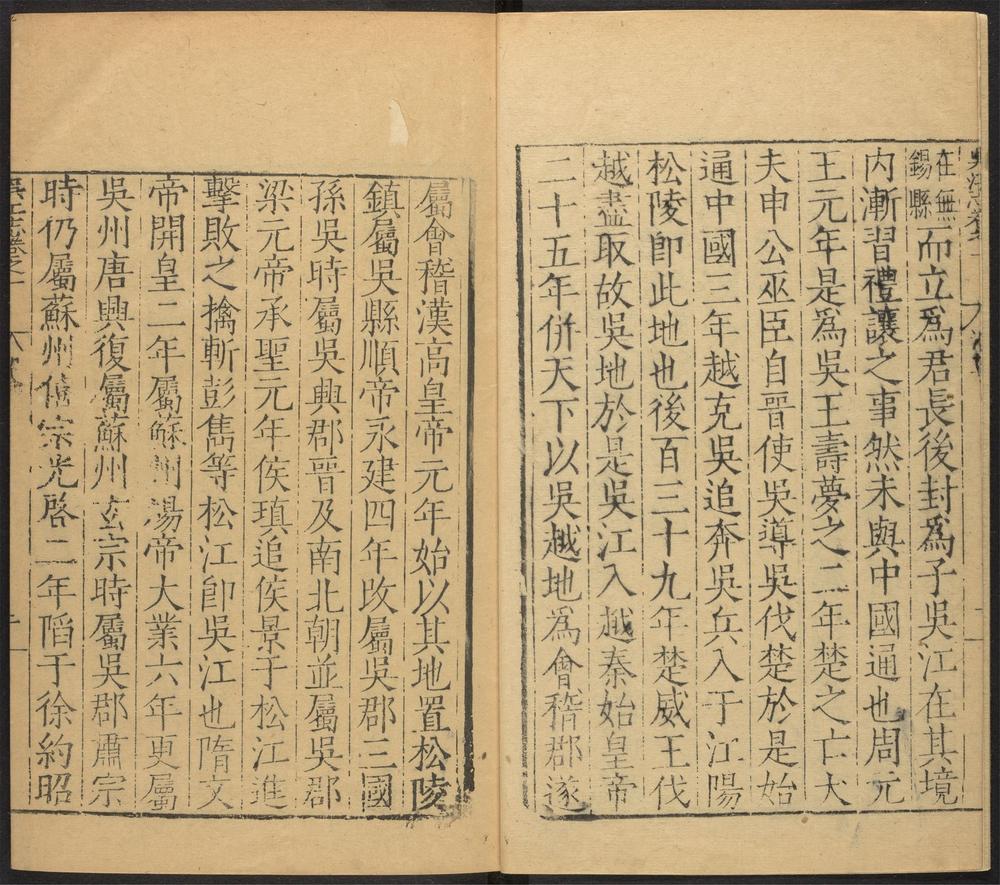 在無
錫縣
而立爲君長後封爲子吳江在其境
内漸習禮讓之事然未與中國通也周元
王元年是爲吳王壽夢之二年楚之亡大
夫申公巫臣自晉使吳導吳伐楚於是始
通中國三年越克吳追奔吳兵入于江陽
松陵卽此地也後百三十九年楚威王伐
越盡取故吳地於是吳江入越秦始皇帝
二十五年併天下以吳越地爲會稽郡遂
屬會稽漢高皇帝元年始以其地置松陵
鎮屬吳縣順帝永建四年改屬吳郡三國
孫吳時屬吳興郡晉及南北朝並屬吳郡
梁元帝承聖元年侯瑱追侯景于松江進
擊敗之擒斬彭雋等松江卽吳江也隋文
帝開皇二年屬蘇州湯帝大業六年更屬
吳州唐興復屬蘇州玄宗時屬吳郡肅宗
時仍屬蘇州僖宗光啓二年陷于徐約昭